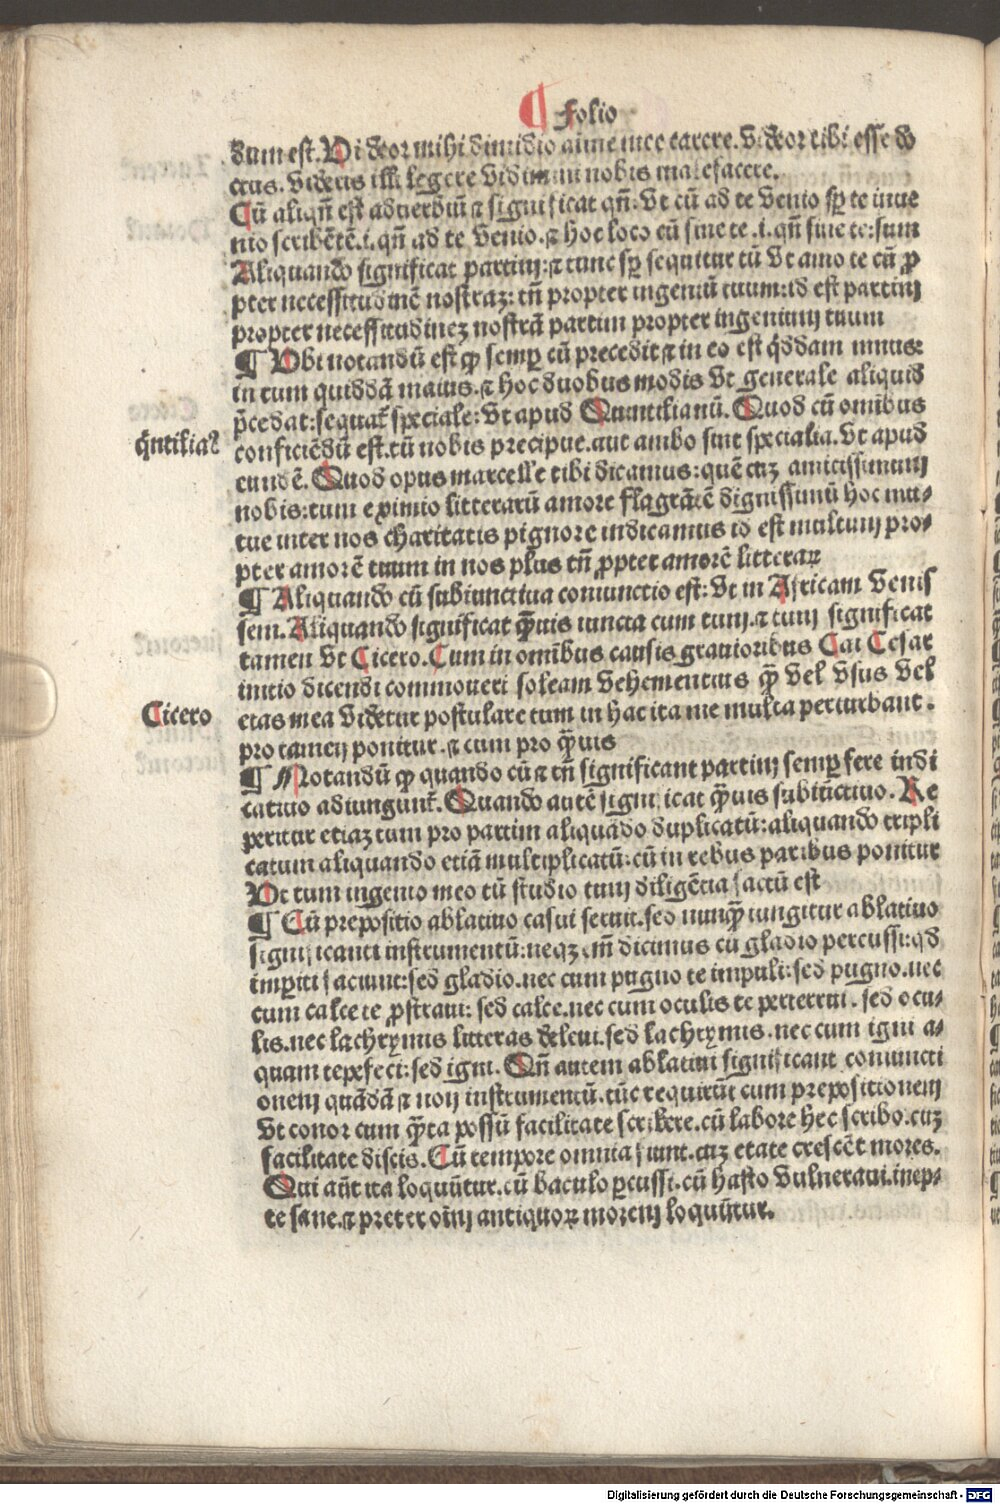 ¶ Folio
dum est. Videor mihi dimidio anime mee carere. Videor tibi esse do
ctus. Videris illi legere Vidimini nobis malefacere.
Cũ aliqñ est aduerbiũ ⁊ significat qñ: Vt cũ ad te Venio sꝑ te inue
nio scribẽtẽ.i.qñ ad te Venio.⁊ hoc loco cũ sine te .i.qñ sine te: sum
Aliquando significat partim:⁊ tunc sꝑ sequitur tũ Vt amo te cũ ꝓ
pter necessitudinẽ nostraz: tñ propter ingeniũ tuum:id est partim
propter necessitudinez nostrã partim propter ingenium tuum
¶ Vbi notandũ est ꝙ semꝑ cũ precedit ⁊ in eo est q̇ddam minus:
in tum quiddã maius.⁊ hoc duobus modis Vt generale aliquid
p̄cedat:sequat̃ speciale: Vt apud Quintilianũ. Quod cũ omibus
q̇ntiliaꝰ
conficiẽdũ est.tũ nobis precipue.aut ambo sint specialia.Vt apud
eundẽ. Quod opus marcelle tibi dicamus:quẽ cuz amicissimum
nobis:tum eximio litterarũ amore flagrãtẽ dignissimũ hoc mu-
tue inter nos charitatis pignore iudicamus id est multum pro-
pter amorẽ tuum in nos plus tñ ꝓpter amorẽ litteraꝝ
¶ Aliquando cũ subiunctiua coniunctio est: Vt in Africam Venis
sem. Aliquando significat q̃uis iuncta cum tum.⁊ tum significat
tamen Vt Cicero. Cum in omĩbus causis grauioribus Cai Cesar
initio dicendi commoueri soleam Vehementius q̃ Vel Vsus Vel
Cicero
etas mea Videtur postulare tum in hac ita me multa perturbant.
pro tamen ponitur.⁊ cum pro q̃uis
¶ Notandũ ꝙ quando cũ ⁊ tñ significant partim semꝑ fere indi
catiuo adiungunt̃. Quando autẽ significat q̃uis subiũctiuo. Re
peritur etiaz tum pro partim aliquãdo duplicatũ:aliquando tripli
catum aliquando etiã multiplicatũ:cũ in rebus paribus ponitur
Vt tum ingenio meo tũ studio tum diligẽtia factũ est
¶ Cũ prepositio ablatiuo casui seruit.sed nunq̃ iungitur ablatiuo
significanti instrumentũ:neqz em̃ dicimus cũ gladio percussi:qd
imꝑiti faciunt:sed gladio.nec cum pugno te impuli:sed pugno.nec
cum calce te ꝓstraui: sed calce.nec cum oculis te perterrui. sed ocu-
lis.nec lachrymis litteras deleui.sed lachrymis.nec cum igni a-
quam tepefeci:sed igni. Qñ autem ablatiui significant coniuncti
onem quãdã ⁊ non instrumentũ.tũc requirũt cum prepositionem
Vt conor cum q̃ta possũ facilitate scribere.cũ labore hec scribo.cuz
facilitate discis. Cũ tempore omnia fiunt.cuz etate crescẽt mores.
Qui aũt ita loquũtur.cũ baculo ꝑcussi.cũ hasto Vulneraui.inep-
te sane.⁊ preter oĩm antiquoꝝ morem loquũtur.
Digitalisierung gefördert durch die Deutsche Forschungsgemeinschaft - DFG